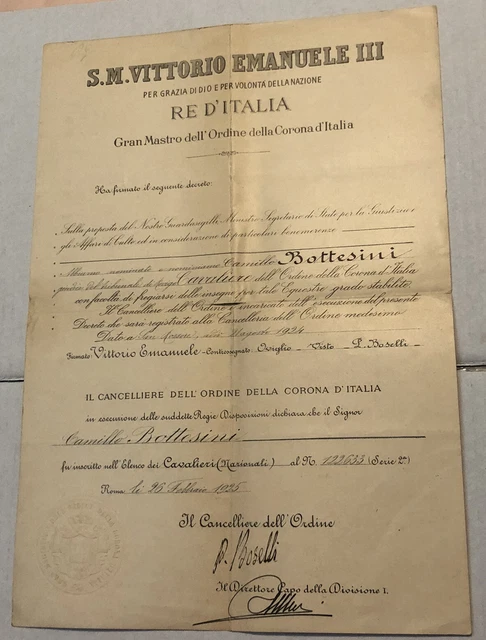 S.M. VITTORIO EMANUELE III
PER GRAZIA DI DIO E PER VOLONTÀ DELLA NAZIONE
RE D'ITALIA
Gran Mastro dell'Ordine della Corona d'Italia
Ha firmato il seguente decreto:
Sulla proposta del Nostro Guardasigilli, Ministro Segretario di Stato per la Giustizia e
gli Affari di Culto ed in considerazione di particolari benemerenze
Abbiamo nominato e nominiamo Camillo Bottesini
giudice del tribunale di Cavaliere dell'Ordine della Corona d'Italia
con facoltà di fregiarsi delle insegne per tale Equestre grado stabilite.
Il Cancelliere dell'Ordine è incaricato dell'esecuzione del presente
Decreto che sarà registrato alla Cancelleria dell'Ordine medesimo
Dato a San Rossore, addì agosto 1924
Firmato Vittorio Emanuele - Controssegnato Oviglio - Visto P. Boselli -
IL CANCELLIERE DELL'ORDINE DELLA CORONA D'ITALIA
in esecuzione delle suddette Regie Disposizioni dichiara che il Signor
Camillo Bottesini
fu inscritto nell'Elenco dei Cavalieri (Nazionali) al N. 122633 (Serie 2ª)
Roma, lì 26 Febbraio 1925
Il Cancelliere dell'Ordine
P. Boselli
Il Direttore Capo della Divisione 1ª